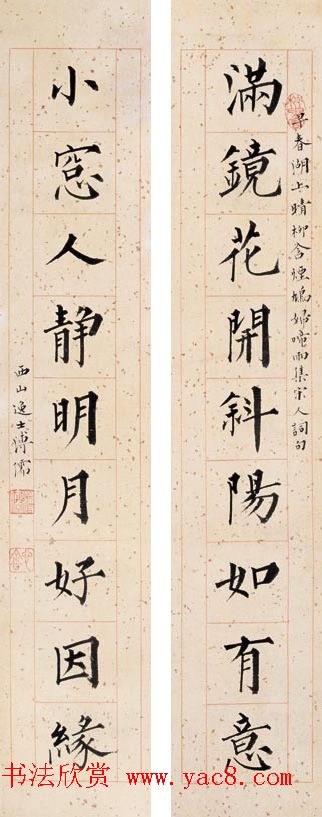 滿鏡花開斜陽如有意
早春湖上晴柳含煙鳩婦啼雨集宋人詞句
小窓人靜明月好因緣
西山逸士溥儒
书法欣赏 www.yac8.com